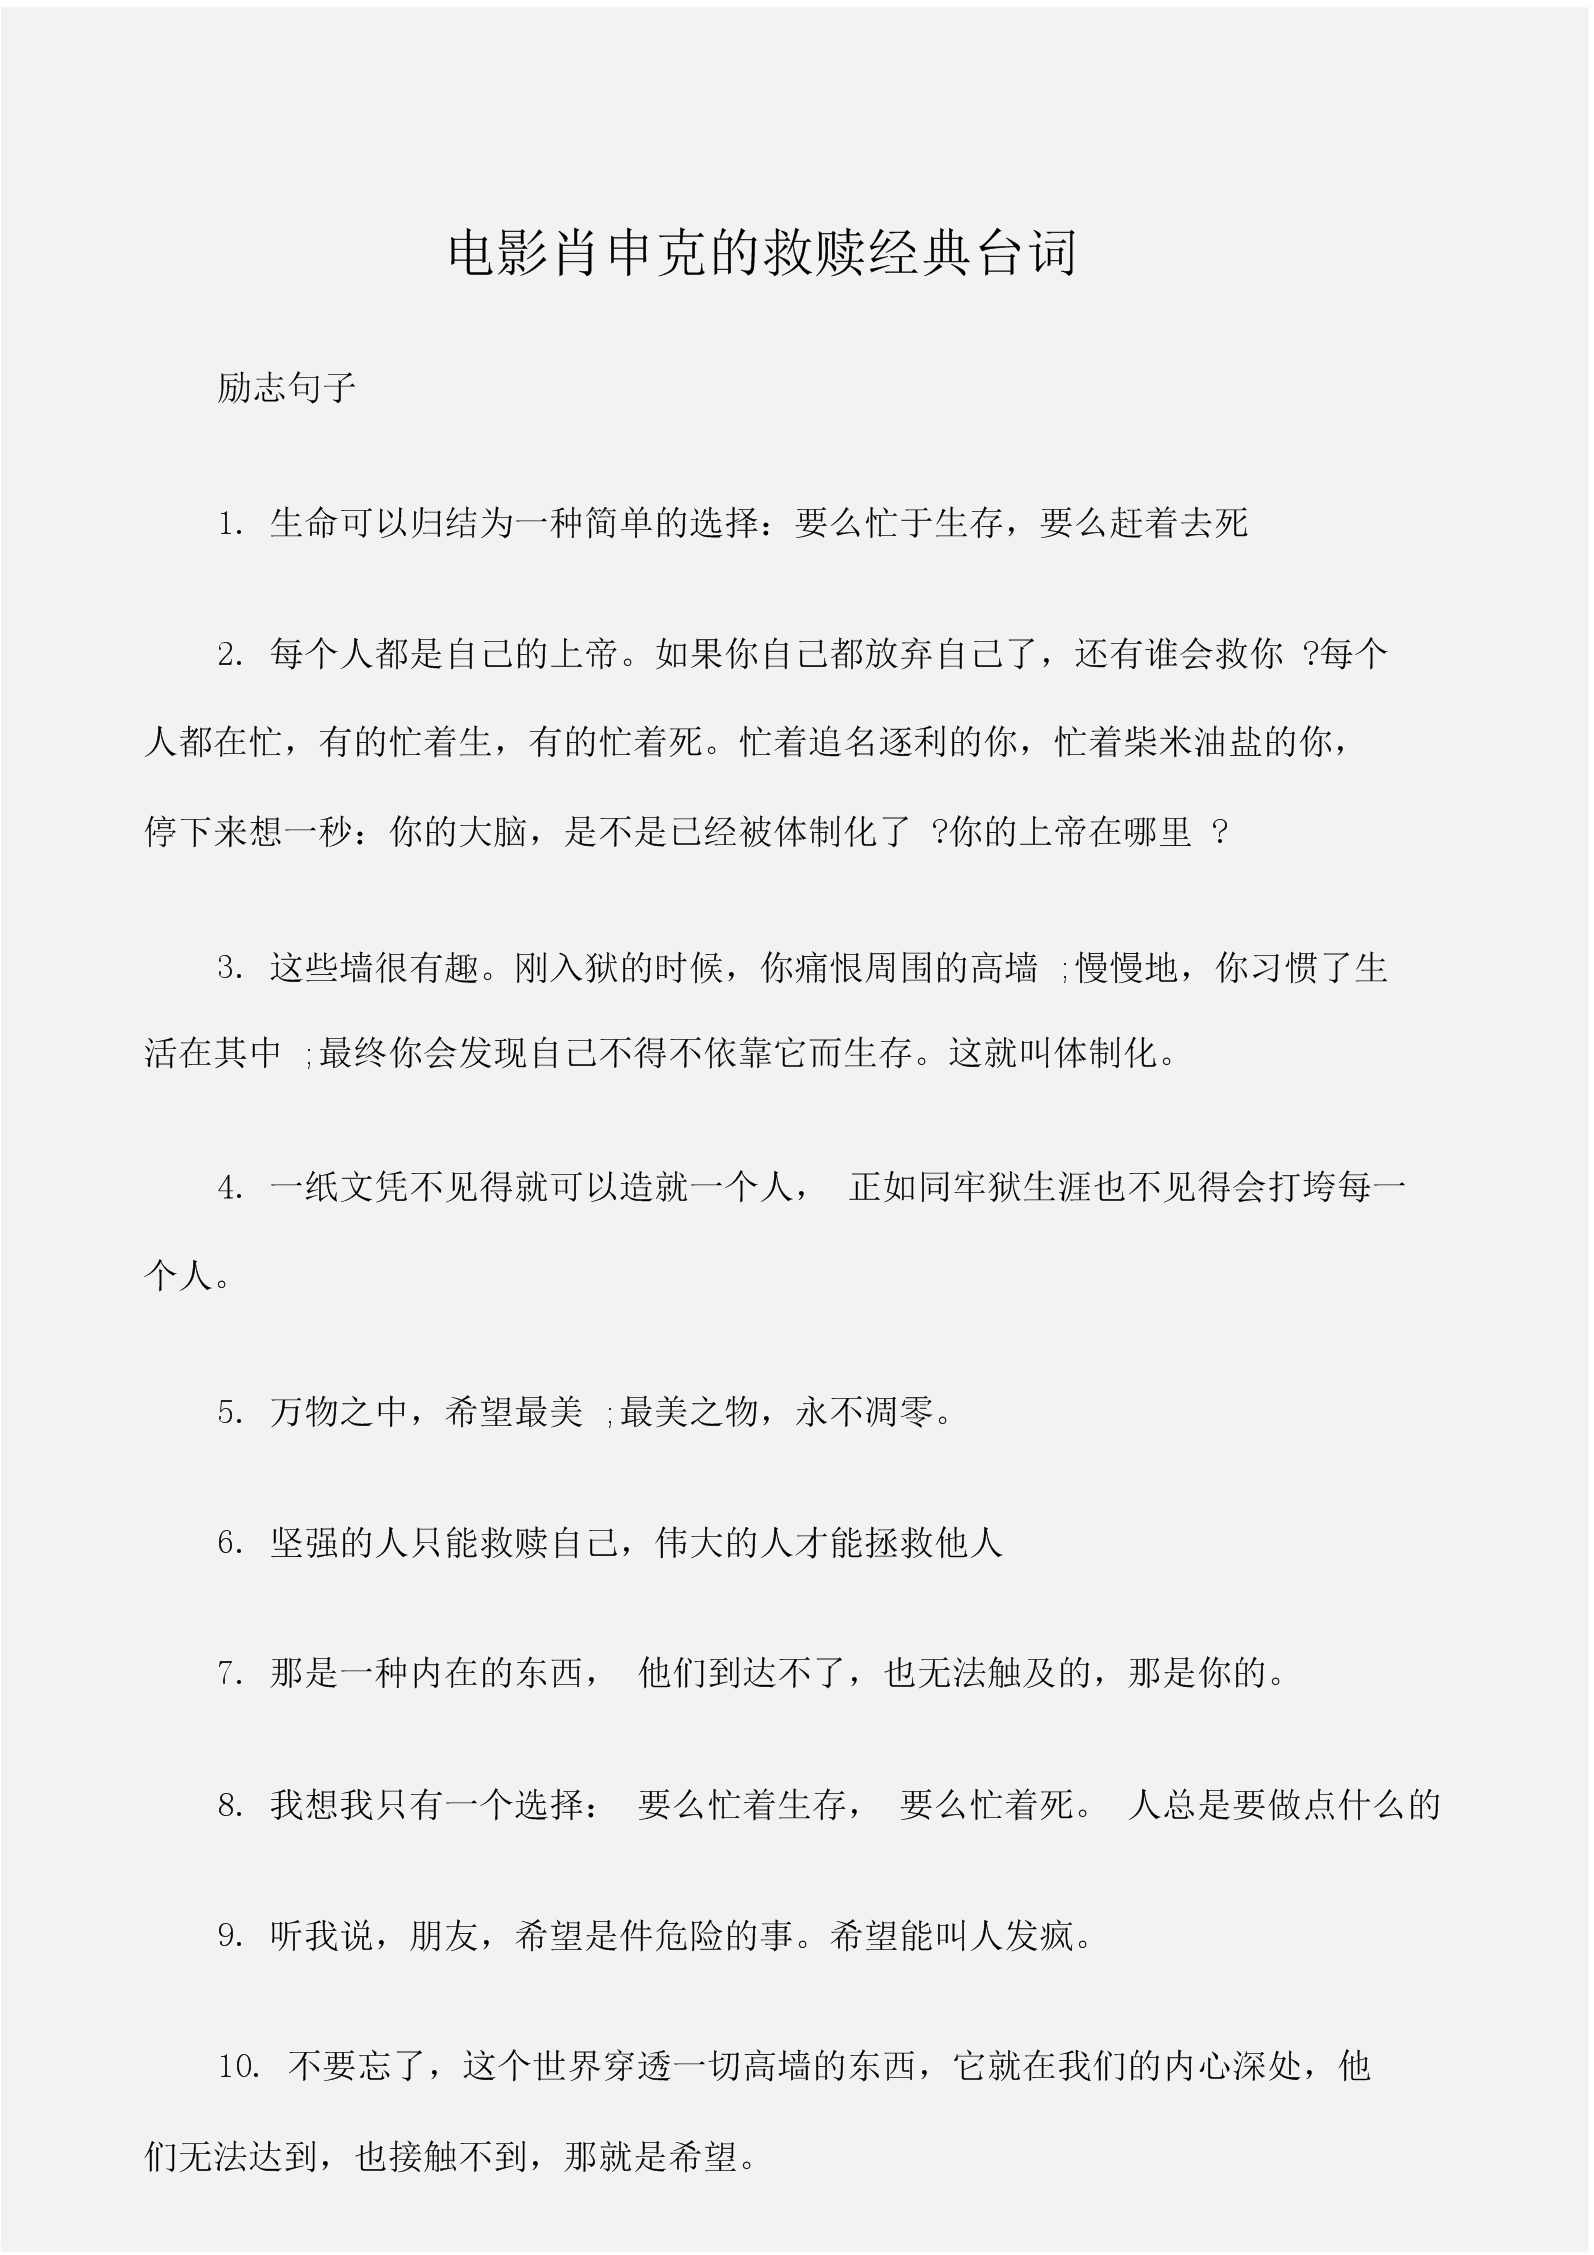 电影肖申克的救赎经典台词
励志句子
1. 生命可以归结为一种简单的选择：要么忙于生存，要么赶着去死
2. 每个人都是自己的上帝。如果你自己都放弃自己了，还有谁会救你 ?每个
人都在忙，有的忙着生，有的忙着死。忙着追名逐利的你，忙着柴米油盐的你，
停下来想一秒：你的大脑，是不是已经被体制化了 ?你的上帝在哪里 ?
3. 这些墙很有趣。刚入狱的时候，你痛恨周围的高墙 ;慢慢地，你习惯了生
活在其中 ;最终你会发现自己不得不依靠它而生存。这就叫体制化。
4. 一纸文凭不见得就可以造就一个人， 正如同牢狱生涯也不见得会打垮每一
个人。
5. 万物之中，希望最美 ;最美之物，永不凋零。
6. 坚强的人只能救赎自己，伟大的人才能拯救他人
7. 那是一种内在的东西， 他们到达不了，也无法触及的，那是你的。
8. 我想我只有一个选择： 要么忙着生存， 要么忙着死。 人总是要做点什么的
9. 听我说，朋友，希望是件危险的事。希望能叫人发疯。
10. 不要忘了，这个世界穿透一切高墙的东西，它就在我们的内心深处，他
们无法达到，也接触不到，那就是希望。